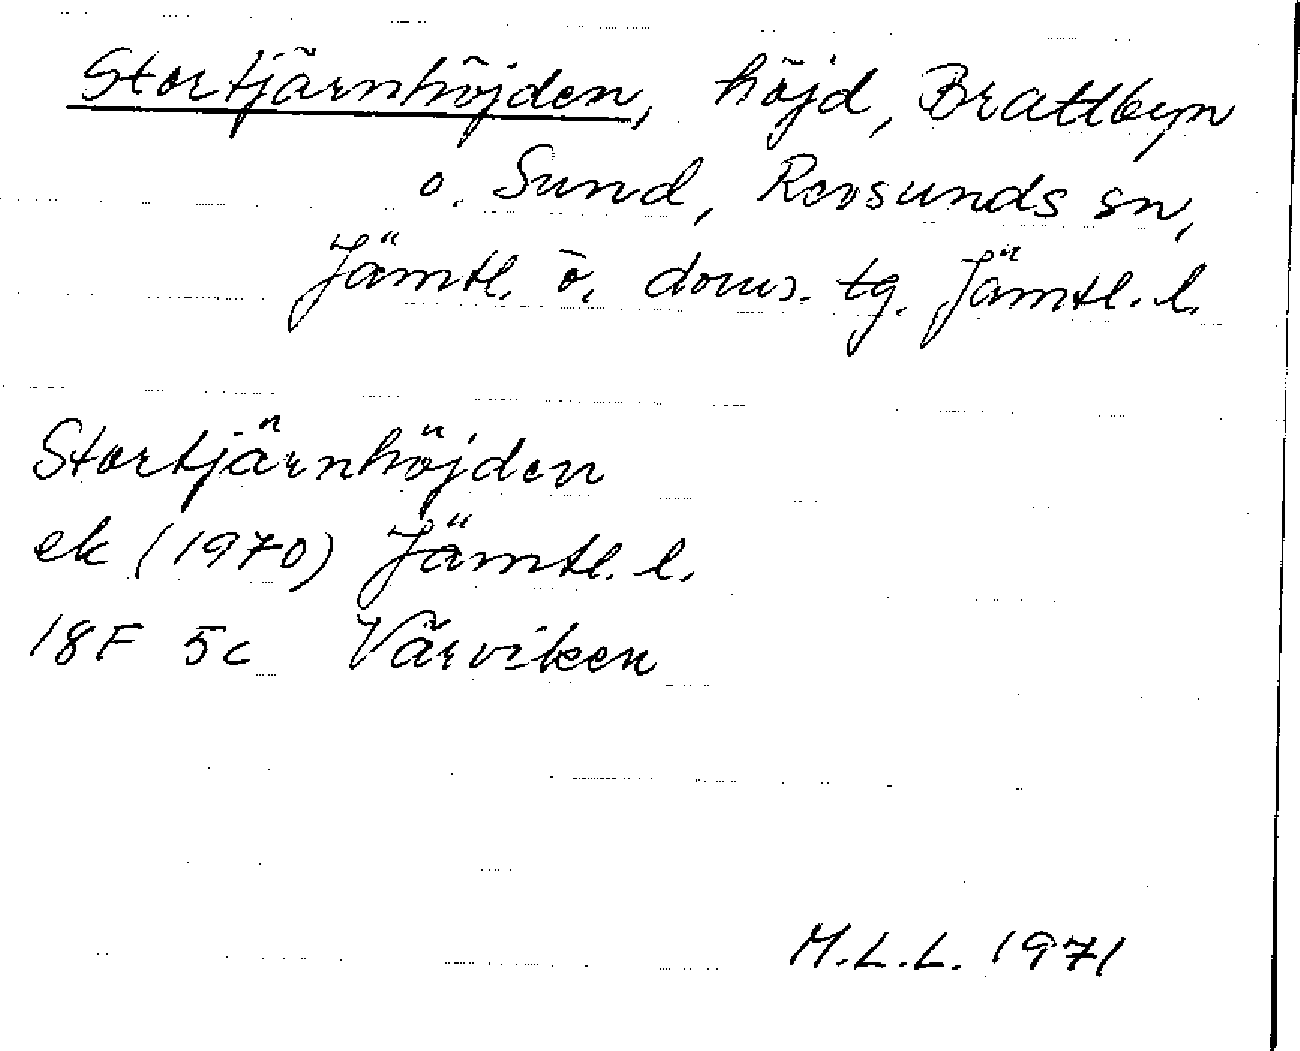 Stortjärnhöjden, höjd, Brattbyn
o. Sund, Revsunds sn,
Jämtl. ö. doms. tg. Jämtl. l.
Stortjärnhöjden
ek (1970) Jämtl. l.
18F 5c Värviken
M.L.L. 1971